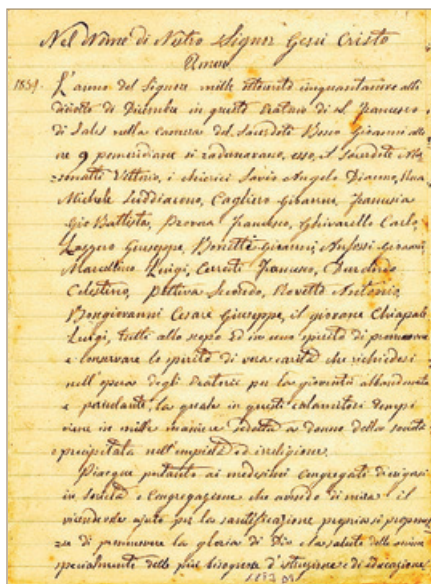 Nel Nome di Nostro Signor Gesù Cristo
Amen
1859. L'anno del Signore mille ottocento cinquantanove alli
diciotto di Dicembre in questo Oratorio di S. Francesco
di Sales nella camera del Sacerdote Bosco Giovanni alle
ore 9 pomeridiane si radunavano, esso, il Sacerdote Ala-
sonatti Vittorio, i chierici Savio Angelo Diacono, Rua
Michele Suddiacono, Cagliero Giovanni, Francesia
Gio Battista, Provera Francesco, Ghivarello Carlo,
Lazzero Giuseppe, Bonetti Giovanni, Anfossi Giovanni,
Marcellino Luigi, Cerruti Francesco, Durando
Celestino, Pettiva Secondo, Rovetto Antonio,
Bongiovanni Cesare Giuseppe, il giovane Chiapale
Luigi, tutti allo scopo ed in uno spirito di promuovere
e conservare lo spirito di vera carità che richiedesi
nell'opera degli Oratorii per la gioventù abbandonata
e pericolante, la quale in questi calamitosi tempi
viene in mille maniere sedotta a danno della società
e precipitata nell'empietà ed irreligione.
Piacque pertanto ai medesimi congregati di erigersi
in Società o Congregazione che avendo di mira il
vicendevole ajuto per la santificazione propria si propones-
se di promuovere la gloria di Dio e la salute delle anime
specialmente delle più bisognose d'istruzione e di educazione